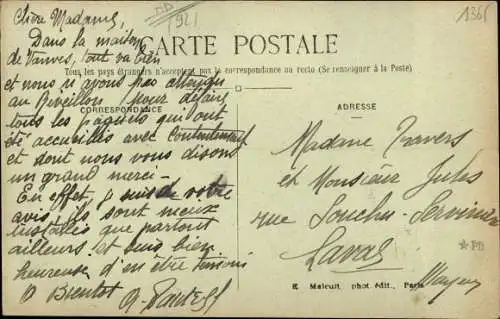 Chère Madame,
Dans la maison
de Vanves, tout va bien
et nous n'avons pas attendu
au Réveillon pour défaire
tous les paquets qui ont
été accueillis avec contentement
et dont nous vous disons
un grand merci -
En effet je suis de votre
avis, ils sont mieux
installés que partout
ailleurs et suis bien
heureuse d'en être
A Bientôt
1921
1365
CARTE POSTALE
Tous les pays étrangers n'acceptent pas la correspondance au recto (Se renseigner à la Poste)
CORRESPONDANCE
ADRESSE
Madame Travers
et Monsieur Jules
rue Souchu-Servinière
Laval
Mayenne
E. Malcuit, phot. édit., Paris